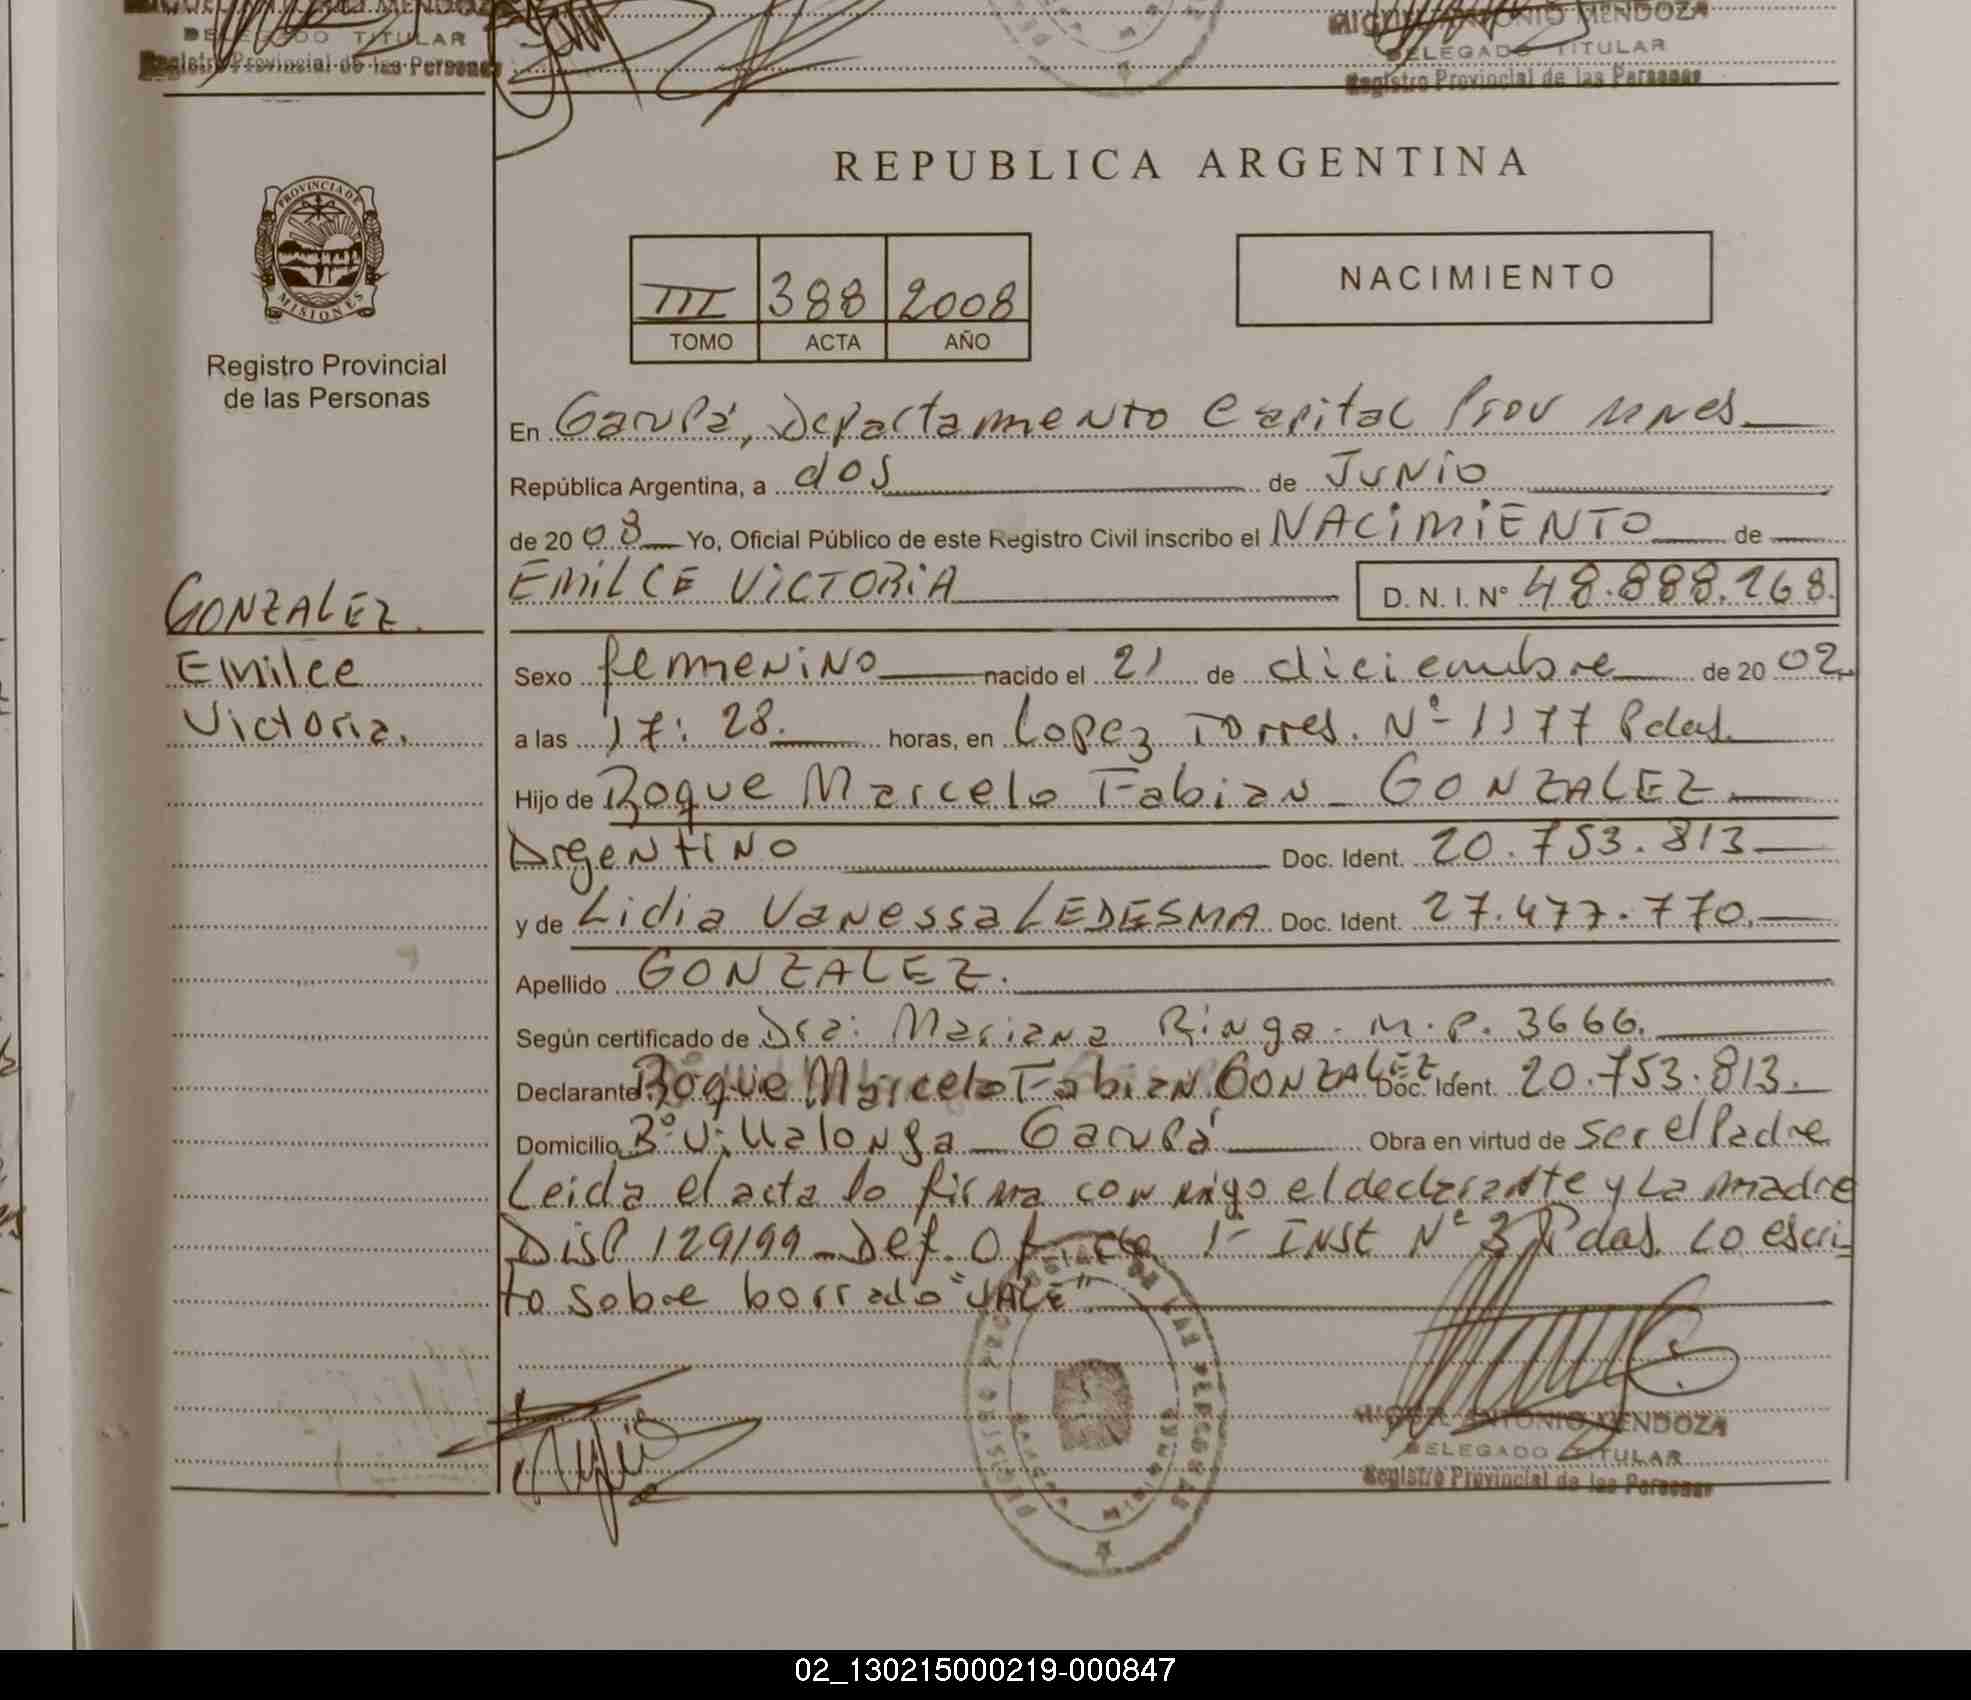 MIGUEL ANTONIO MENDOZA
DELEGADO TITULAR
Registro Provincial de las Personas
MIGUEL ANTONIO MENDOZA
DELEGADO TITULAR
Registro Provincial de las Personas
PROVINCIA DE
MISIONES
Registro Provincial
de las Personas
GONZALEZ.
Emilce
Victoria.
REPUBLICA ARGENTINA
III 388 2008
TOMO ACTA AÑO
NACIMIENTO
En Garupá, Departamento Capital Prov Mnes
República Argentina, a dos de Junio
de 20 08 Yo, Oficial Público de este Registro Civil inscribo el NACIMIENTO de
EMILCE VICTORIA D. N. I. Nº 48.888.268.
Sexo femenino nacido el 21 de diciembre de 20 02.
a las 17: 28. horas, en Lopez Torres. Nº 1177 Pdas.
Hijo de Roque Marcelo Fabian GONZALEZ
Argentino Doc. Ident. 20.753.813
y de Lidia Vanessa LEDESMA Doc. Ident. 27.477.770.
Apellido GONZALEZ.
Según certificado de Dra: Mariana Ringa. M.P. 3666.
Declarante Roque Marcelo Fabian GONZALEZ Doc. Ident. 20.753.813.
Domicilio Bº Villalonga Garupá Obra en virtud de ser el Padre
Leida el acta lo firma conmigo el declarante y La madre
Disp 129/99 Def. Of. de 1º Inst Nº 3 Pdas. Lo escri-
to sobre borrado "VALE"
REGISTRO PROVINCIAL DE LAS PERSONAS
MIGUEL ANTONIO MENDOZA
DELEGADO TITULAR
Registro Provincial de las Personas
02_130215000219-000847